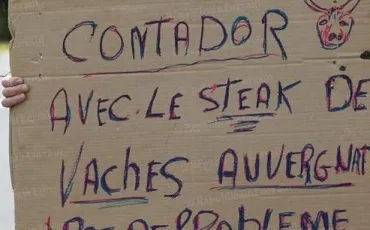 CONTADOR
AVEC.LE STEAK DE
VACHES AUVERGNAT
PAS DE PROBLEME